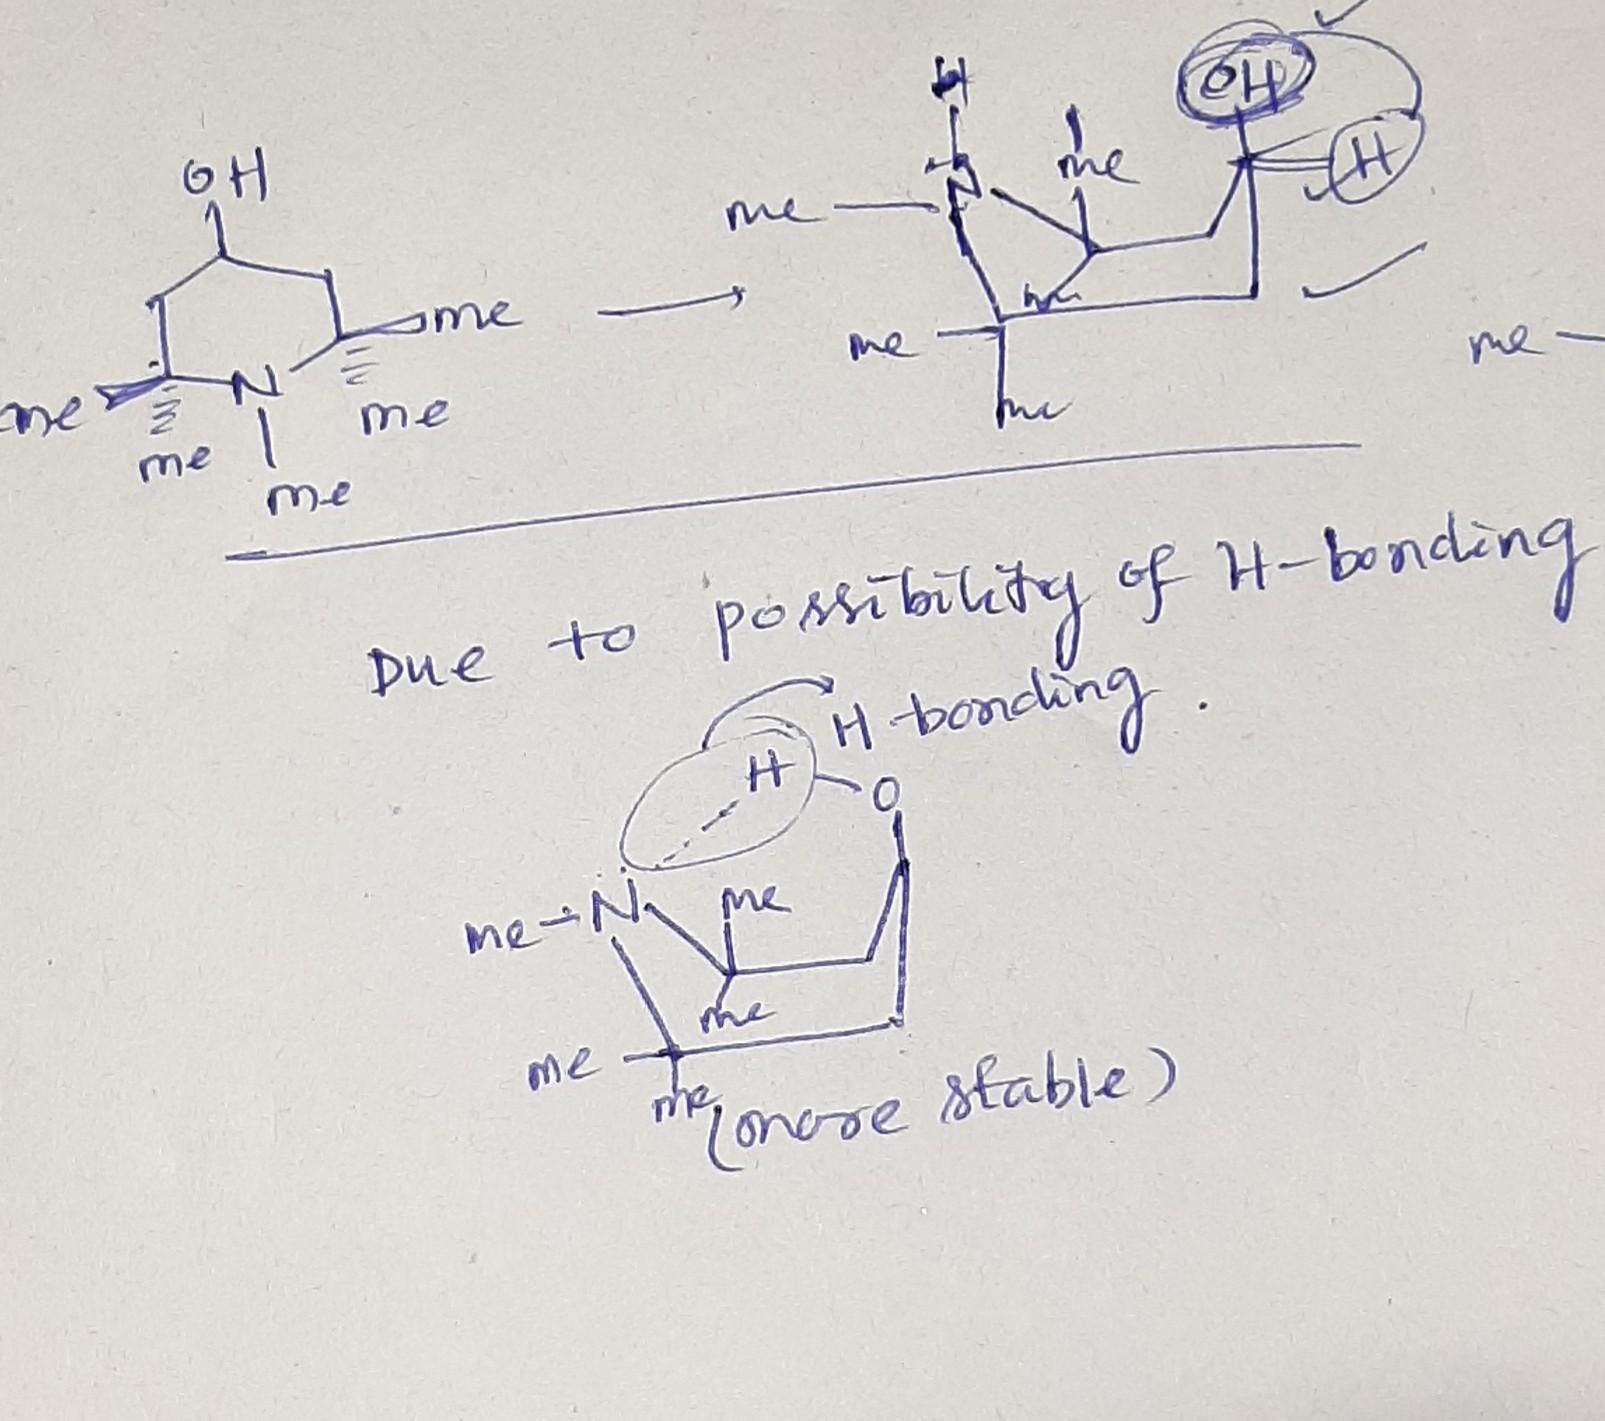 H
OH
OH
me
H
me
N
me
me
me
me
N
me
me
me
me
me
Due to possibility of H-bonding
H-bonding.
H
O
me
N
me
me
me
me
(more stable)